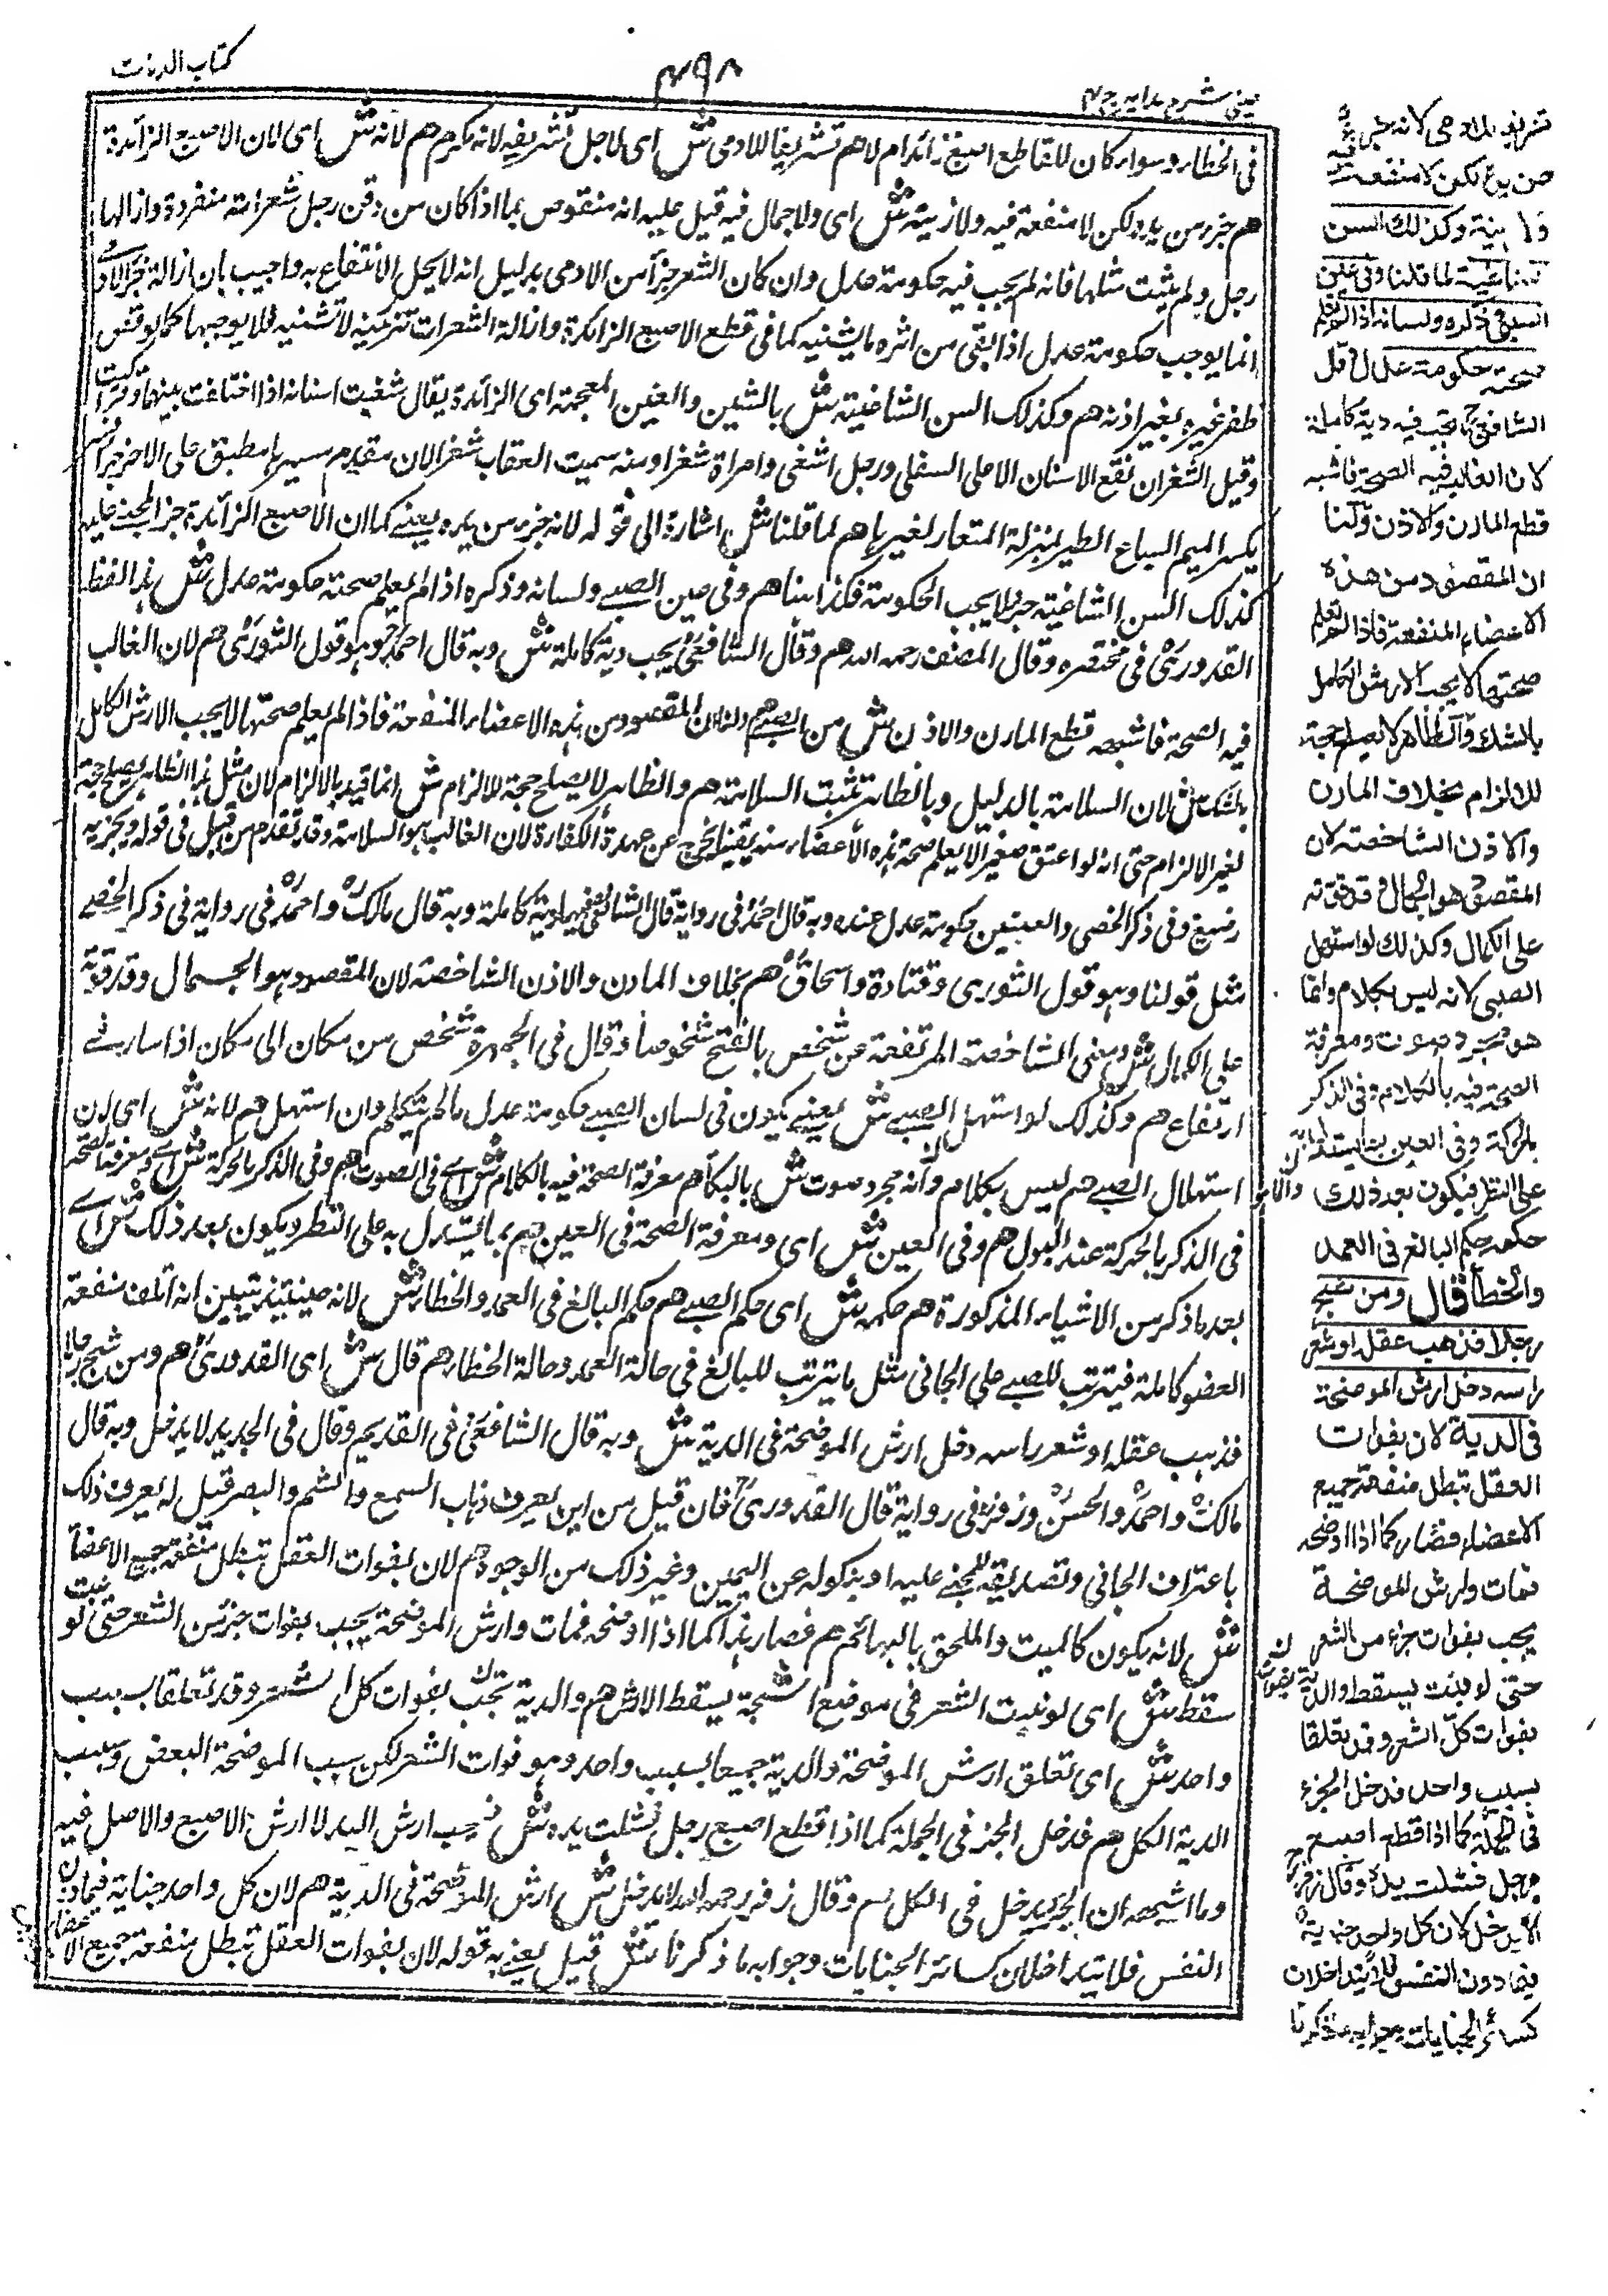 كتاب الديات
٤٩٨
عيني شرح هداية ج ٤
في الخطاء وسواء كان للقاطع اصبع زائد ام لا هم تشريفا للادمى ش اى لاجل تشريفه لانه مكرم هم لانه ش اى لان الاصبع الزائدة
هم جزء من يده لكن لا منفعة فيه ولا زينة ش اى ولا جمال فيه قيل عليه انه منقوض بما اذا كان من ذقن رجل شعرات منفردة وازالها
رجل ولم يثبت مثلها فانه لم يجب فيه حكومة عدل وان كان الشعر جزأ من الادمى بدليل انه لا يحل الانتفاع به واجيب بان ازالة جزء الادمى
انما يوجب حكومة عدل اذا بقى من اثره ما يشينه كما فى قطع الاصبع الزائدة وازالة الشعرات تزينه لا تشينه فلا يوجبها كما لو قص
ظفر غيره بغير اذنه هم وكذلك السن الشاغية ش بالشين والغين المعجمة اى الزائدة يقال شغيت اسنانه اذا اختلفت بينهما وتراكبت
وقيل الشغر ان تقع الاسنان الاعلى السفلى ورجل اشغى وامراة شغواء ومنه سميت العقاب شغوا لان مقدم منسرها مطبق على الاخر
بكسر الميم السباع الطير بمنزلة المنقار لغيرها هم لما قلنا ش اشارة الى قوله لانه جزء من يده يعنے كما ان الاصبع الزائدة جزء المجنى عليه
كذلك السن الشاغية جزء لا يجب الحكومة فكذا هنا هم وفى عين الصبے ولسانه وذكره اذا لم يعلم صحته حكومة عدل ش هذا لفظ
القدورى فى مختصره وقال المصنف رحمه الله هم وقال الشافعى يجب دية كاملة ش وبه قال احمد وهو قول الثورى هم لان الغالب
فيه الصحة فاشبه قطع المارن والاذن ش من الصبى هم ولنا ان المقصود من هذه الاعضاء المنفعة فاذا لم يعلم صحتها لا يجب الارش الكامل
بالشك ش لان السلامة بالدليل وبالظاهر تثبت السلامة هم والظاهر لا يصلح حجة للالزام ش انما قيد بالالزام لان مثل هذا الظاهر يصلح حجة
لغير الالزام حتى انه لو اعتق صغيرا لا يعلم صحة هذه الاعضاء منه يقينا يخرج عن عهدة الكفارة لان الغالب هو السلامة وقد تقدم من قبل فى قوله ويجزيه
رضيع وفى ذكر الخصى والعنين حكومة عدل عنده وبه قال احمد فى رواية قال الشافعى فيهما دية كاملة وبه قال مالك واحمد فى رواية فى ذكر الخصے
مثل قولنا وهو قول الثورى وقتادة واسحاق هم بخلاف المارن والاذن الشاخصة لان المقصود هو الجمال وقد فوته
على الكمال ش ومعنى الشاخصة المرتفعة من شخص بالفتح شخوصا وقال فى الجمهرة شخص من مكان الى مكان اذا سار فے
ارتفاع هم وكذلك لو استهل الصبے ش يعنے يكون فى لسان الصبے حكومة عدل ما لم يتكلم وان استهل هم لانه ش اى لان
استهلال الصبے هم ليس بكلام وانه مجرد صوت ش بالبكاء هم معرفة الصحة فيه بالكلام ش اى فى الصوت هم وفى الذكر بالحركة ش اى ومعرفة الصحة
فى الذكر بالحركة عند البول هم وفى العين ش اى ومعرفة الصحة فى العين هم بما يستدل به على النظر ويكون بعد ذلك ش اے
بعد ما ذكر من الاشياء المذكورة هم حكمه ش اى حكم الصبے هم حكم البالغ فى العمد والخطاء ش لانه حينئذ يتبين انه اتلف منفعة
العضو كاملة فيترتب للصبے على الجانى مثل ما يترتب للبالغ فى حالة العمد وحالة الخطاء هم قال ش اى القدورى هم ومن شج رجلا
فذهب عقله او شعر راسه دخل ارش الموضحة فى الدية ش وبه قال الشافعى فى القديم وقال فى الجديد لا يدخل وبه قال
مالك واحمد والحسن وزفر فى رواية قال القدورى فان قيل من اين يعرف ذهاب السمع والشم والبصر قيل له يعرف ذلك
باعتراف الجانى وتصديقه للمجنے عليه او بنكوله عن اليمين وغير ذلك من الوجوه هم لان بفوات العقل تبطل منفعة جميع الاعضاء
ش لانه يكون كالميت والملحق بالبهائم هم فصار هذا كما اذا اوضحه فمات وارش الموضحة يجب بفوات جزء من الشعر حتى لو نبت
سقط ش اى لو نبت الشعر فى موضع الشجة يسقط الارش هم والدية تجب بفوات كل الشعر وقد تعلقا بسبب
واحد ش اى تعلق ارش الموضحة والدية جميعا بسبب واحد وهو فوات الشعر لكن سبب الموضحة البعض وسبب
الدية الكل هم فدخل الجزء فى الجملة كما اذا قطع اصبع رجل فشلت يده ش يجب ارش اليد لا ارش الاصبع والاصل فيه
وما اشبهه ان الجزء يدخل فى الكل هم وقال زفر رحمه الله لا يدخل ش ارش الموضحة فى الدية هم لان كل واحد جناية فيما دون
النفس فلا يتداخلان كسائر الجنايات وجوابه ما ذكرنا ش قيل يعنے به قوله لان بفوات العقل تبطل منفعة جميع الاعضاء
تشريفا للادمى لانه جزء
من يده لكن لا منفعة فيه
ولا زينة وكذلك السن
الشاغية لما قلنا وفى عين
الصبى وذكره ولسانه اذا لم تعلم
صحته حكومة عدل وقال
الشافعى تجب فيه دية كاملة
لان الغالب فيه الصحة فاشبه
قطع المارن والاذن ولنا
ان المقصود من هذه
الاعضاء المنفعة فاذا لم تعلم
صحتها لا يجب الارش الكامل
بالشك والظاهر لا يصلح حجة
للالزام بخلاف المارن
والاذن الشاخصة لان
المقصود هو الجمال وقد فوته
على الكمال وكذلك لو استهل
الصبى لانه ليس بكلام وانما
هو مجرد صوت ومعرفة
الصحة فيه بالكلام وفى الذكر
بالحركة وفى العين بما يستدل به
على النظر فيكون بعد ذلك
حكمه حكم البالغ فى العمد
والخطأ قال ومن شج
رجلا فذهب عقله او شعر
راسه دخل ارش الموضحة
فى الدية لان بفوات
العقل تبطل منفعة جميع
الاعضاء فصار كما اذا اوضحه
فمات وارش الموضحة
يجب بفوات جزء من الشعر
حتى لو نبت يسقط والدية
بفوات كل الشعر وقد تعلقا
بسبب واحد فدخل الجزء
فى الجملة كما اذا قطع اصبع
رجل فشلت يده وقال زفر
لا يدخل لان كل واحد جناية
فيما دون النفس فلا يتداخلان
كسائر الجنايات وجوابه ما ذكرنا